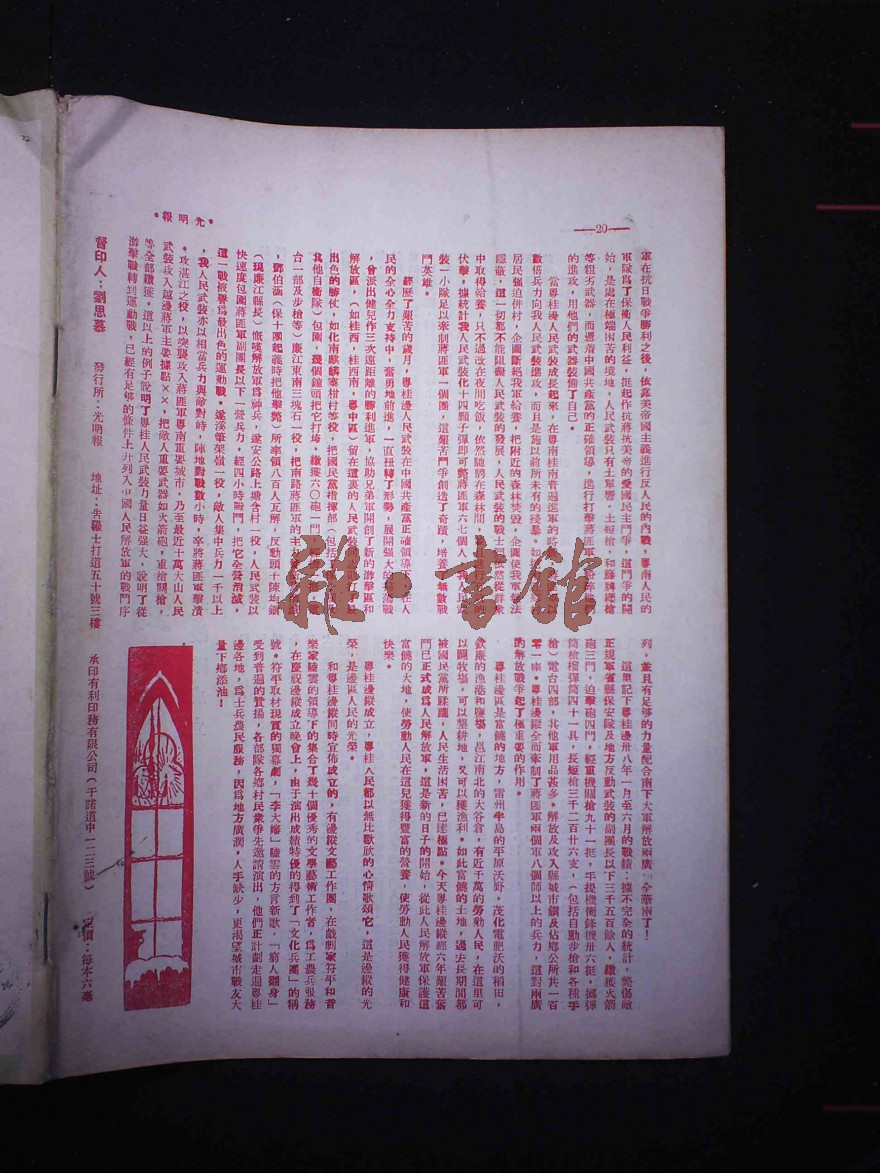 —20—
•光明報•
軍在抗日戰爭勝利之後，依靠美帝國主義進行反人民的內戰，粵南人民的
軍隊爲了保衞人民利益，挺起作抗蔣抗美帝的愛國民主鬥爭，這鬥爭的開
始，是處在極端困苦的境地，人民武裝只有土單響、土短槍、和
等粗劣武器，而憑着中國共產黨的正確領導，進行打擊蔣匪軍
的進攻，用他們的武器裝備了自己。
當粵桂邊人民武裝成長起來，在粵南桂南普遍進軍的時
數倍兵力向我人民武裝進攻，而且是施以前所未有的殘暴，如
居民強迫併村，企圖斷絕我軍給養，把附近的森林焚毀，企圖使我軍無法
隱蔽，這一切都不能阻礙人民武裝的發展，人民武裝的戰士依然從群衆
中取得給養，只不過改在夜間吃飯，依然隨時在森林間
伏擊，據統計我人民武裝化十四顆子彈即可斃蔣匪軍六七個人，我人民武
裝一小隊足以牽制蔣匪軍一個團，這艱苦鬥爭創造了奇蹟，培養了無數戰
鬥英雄。
經歷了艱苦的歲月，粵桂邊人民武裝在中國共產黨正確領導
民的全心全力支持中，奮勇地前進，一直扭轉了形勢，展開强大的
，曾派出健兒作三次遠距離的勝利進軍，協助兄弟軍開創了新的游擊區和
解放區，（如桂西，桂西南，粵中區）留在這裏的人民武裝
出色的勝仗，如化南麒麟寨柑村等役，把國民黨指揮部（包括
其他自衞隊）包圍，幾個鐘頭把它打垮，繳獲六〇砲一門，
台一部及步槍等）廉江東南三塊石一役，把南路蔣匪軍的主力
，鄧伯涵（保十團起義時把他擊斃）所率領八百人瓦解，反動頭子陳均鎮
（現廉江縣長）慨嘆解放軍爲神兵，遂安公路上塘含村一役，人民武裝以
快速度包圍蔣匪軍副團長以下一營兵力，經四小時戰鬥，把它全營消滅，
這一戰被譽爲最出色的運動戰。遂溪筆架嶺一役，敵人集中兵力一千以上
，我人民武裝亦以相當兵力與敵對峙，陣地對戰數小時，卒將蔣匪軍擊潰
。攻湛江之役，以突襲攻入蔣匪軍粵南重要城市，乃至最近十萬大山人民
武裝攻入越邊蔣軍主要據點××，把敵人重要武器如火箭砲，重槍關槍，
等全部繳獲。這以上的例子說明了粵桂人民武裝力量日益强大，說明了從
游擊戰轉到運動戰，已經有足够的條件上升列入中國人民解放軍的戰鬥序
列，並且有足够的力量配合南下大軍解放兩廣、全華南了！
這里記下粵桂邊卅八年一月至六月的戰績：據不完全的統計，斃傷敵
正規軍省縣保安隊及地方反動武裝的副團長以下三千五百餘人，繳獲火箭
砲三門，迫擊砲四門，輕重機關槍九十一挺，手提機衝鋒機卅六挺，擲彈
筒槍榴彈筒四十一具，長短槍三千二百廿六支，（包括自動步槍和各種手
槍）電台四部，其他軍用品甚多。解放及攻入縣城市鎭及佔鄉公所共一百
零一座。粵桂邊縱全面牽制了蔣匪軍兩個軍八個師以上的兵力，這對兩廣
的解放戰爭起了極重要的作用。
粵桂邊區是富饒的地方，雷州半島的平原沃野，茂化電肥沃的稻田，
欽廉的漁港和鹽場，邕江南北的大谷倉，有近千萬的勞動人民，在這里可
以闢牧場，可以墾耕地，又可以獲漁利。如此富饒的土地，過去長期間都
被國民黨所蹂躪，人民生活困苦，已達極點。今天粵桂邊縱經六年艱苦奮
鬥已正式成爲人民解放軍，這是新的日子的開始，從此人民解放軍保護這
富饒的大地，使勞動人民在這兒獲得豐富的營養，使勞動人民獲得健康和
快樂。
粵桂邊縱成立，粵桂人民都以無比歡欣的心情歌頌它，這是邊縱的光
榮，是邊區人民的光榮。
和粵桂邊縱同時宣佈成立的，有邊縱文藝工作團，在戲劇家符平和音
樂家陸雲的領導下的集合了幾十個優秀的文學藝術工作者，爲工農兵服務
，在慶祝邊縱成立晚會上，由于演出成績特優的得到了「文化兵團」的稱
號。符平取材現實的獨幕劇，「李大嫂」陸雲的方言新歌，「窮人翻身」
受到普遍的贊揚，各部隊各鄉村民衆爭先邀請演出，他們正計劃走遍粵桂
邊各地，爲士兵農民服務，因爲地方廣濶，人手缺少，更渴望城市戰友大
量下鄉添油！
督印人：劉思慕　發行所：光明報　地址：告羅士打道五十號三樓　承印有利印務有限公司（干諾道中一二三號）　定價：每本六毫
雜·書館